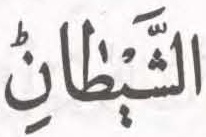 الشَّيْطَانِؕ